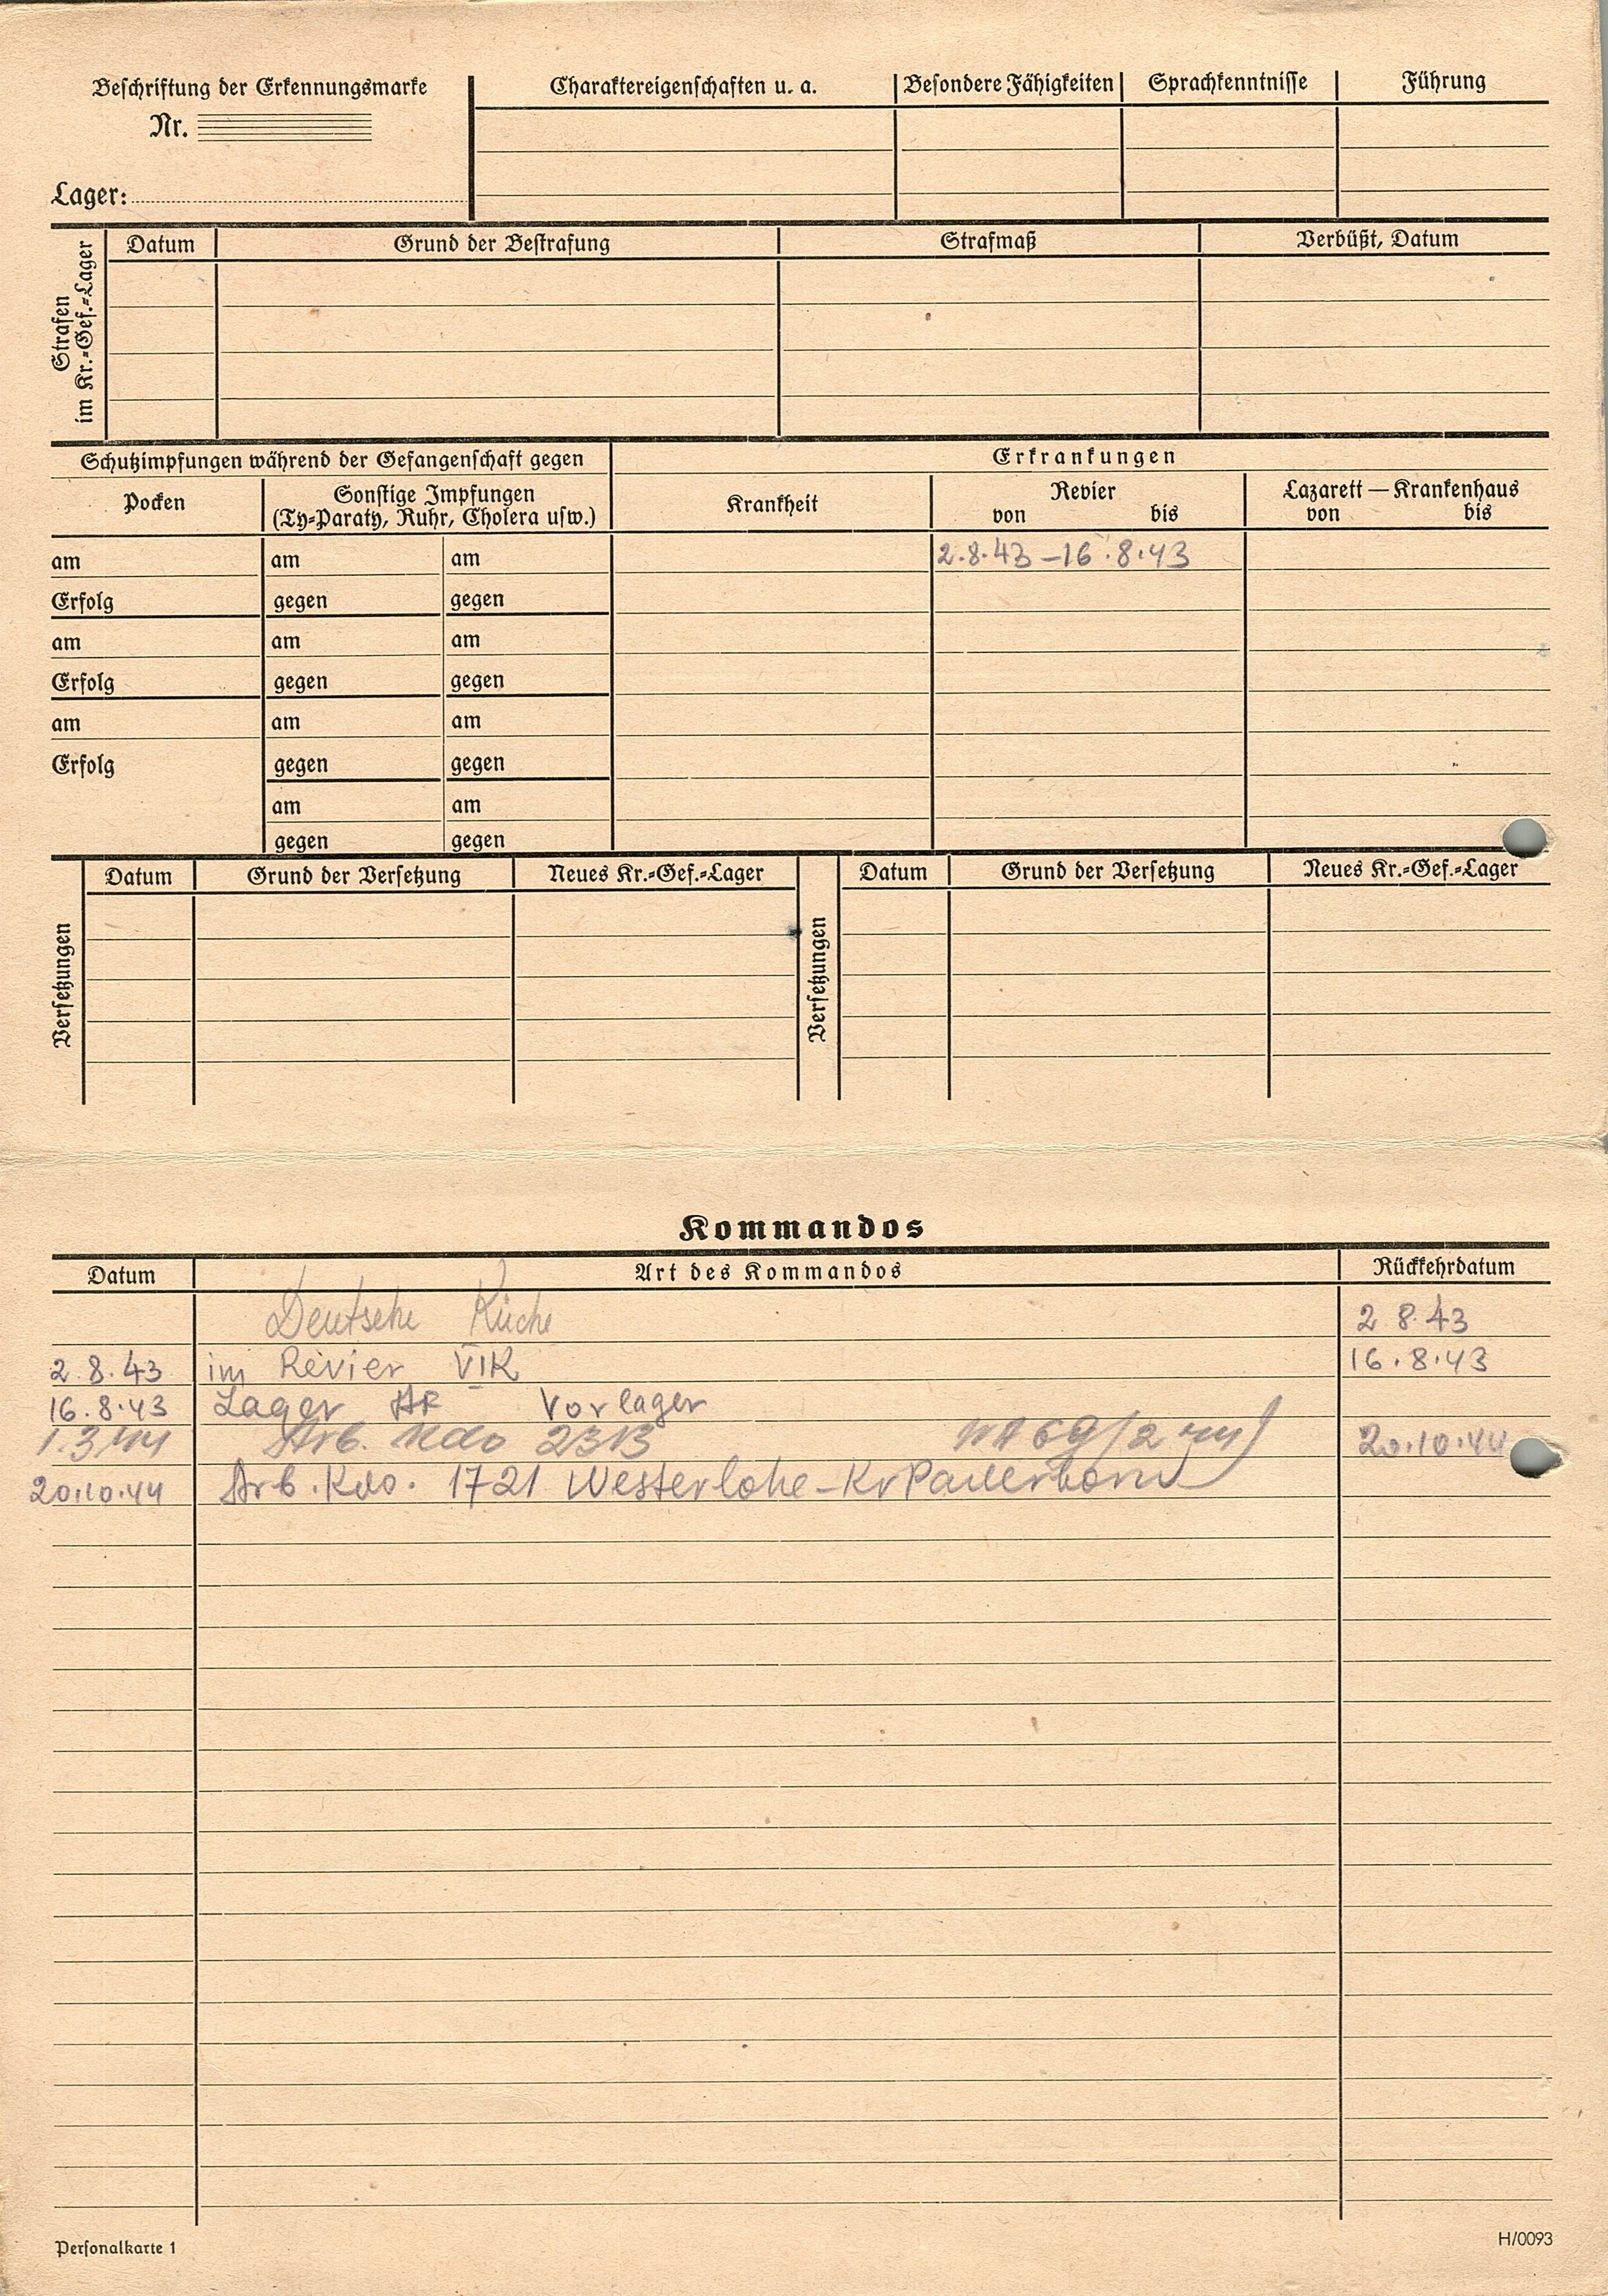 Beschriftung der Erkennungsmarke
Nr.
Lager:
Charaktereigenschaften u. a.
Besondere Fähigkeiten
Sprachkenntnisse
Führung
Strafen
im Kr.-Gef.-Lager
Datum
Grund der Bestrafung
Strafmaß
Verbüßt, Datum
Schutzimpfungen während der Gefangenschaft gegen
Erkrankungen
Pocken
Sonstige Impfungen
(Ty-Paraty, Ruhr, Cholera usw.)
Krankheit
Revier
von bis
Lazarett — Krankenhaus
von bis
am am am 2.8.43 – 16.8.43
Erfolg gegen gegen
am am am
Erfolg gegen gegen
am am am
Erfolg gegen gegen
am am
gegen gegen
Versetzungen
Datum Grund der Versetzung Neues Kr.-Gef.-Lager
Versetzungen
Datum Grund der Versetzung Neues Kr.-Gef.-Lager
Kommandos
Datum Art des Kommandos Rückkehrdatum
Deutsche Küche 2 8.43
2.8.43 im Revier VIK 16.8.43
16.8.43 Lager Vorlager
1.3.44 Arb. Kdo 2313 20.10.44
20.10.44 Arb.Kdo. 1721 Westerlohe-Kr Paderborn
Personalkarte 1
H/0093